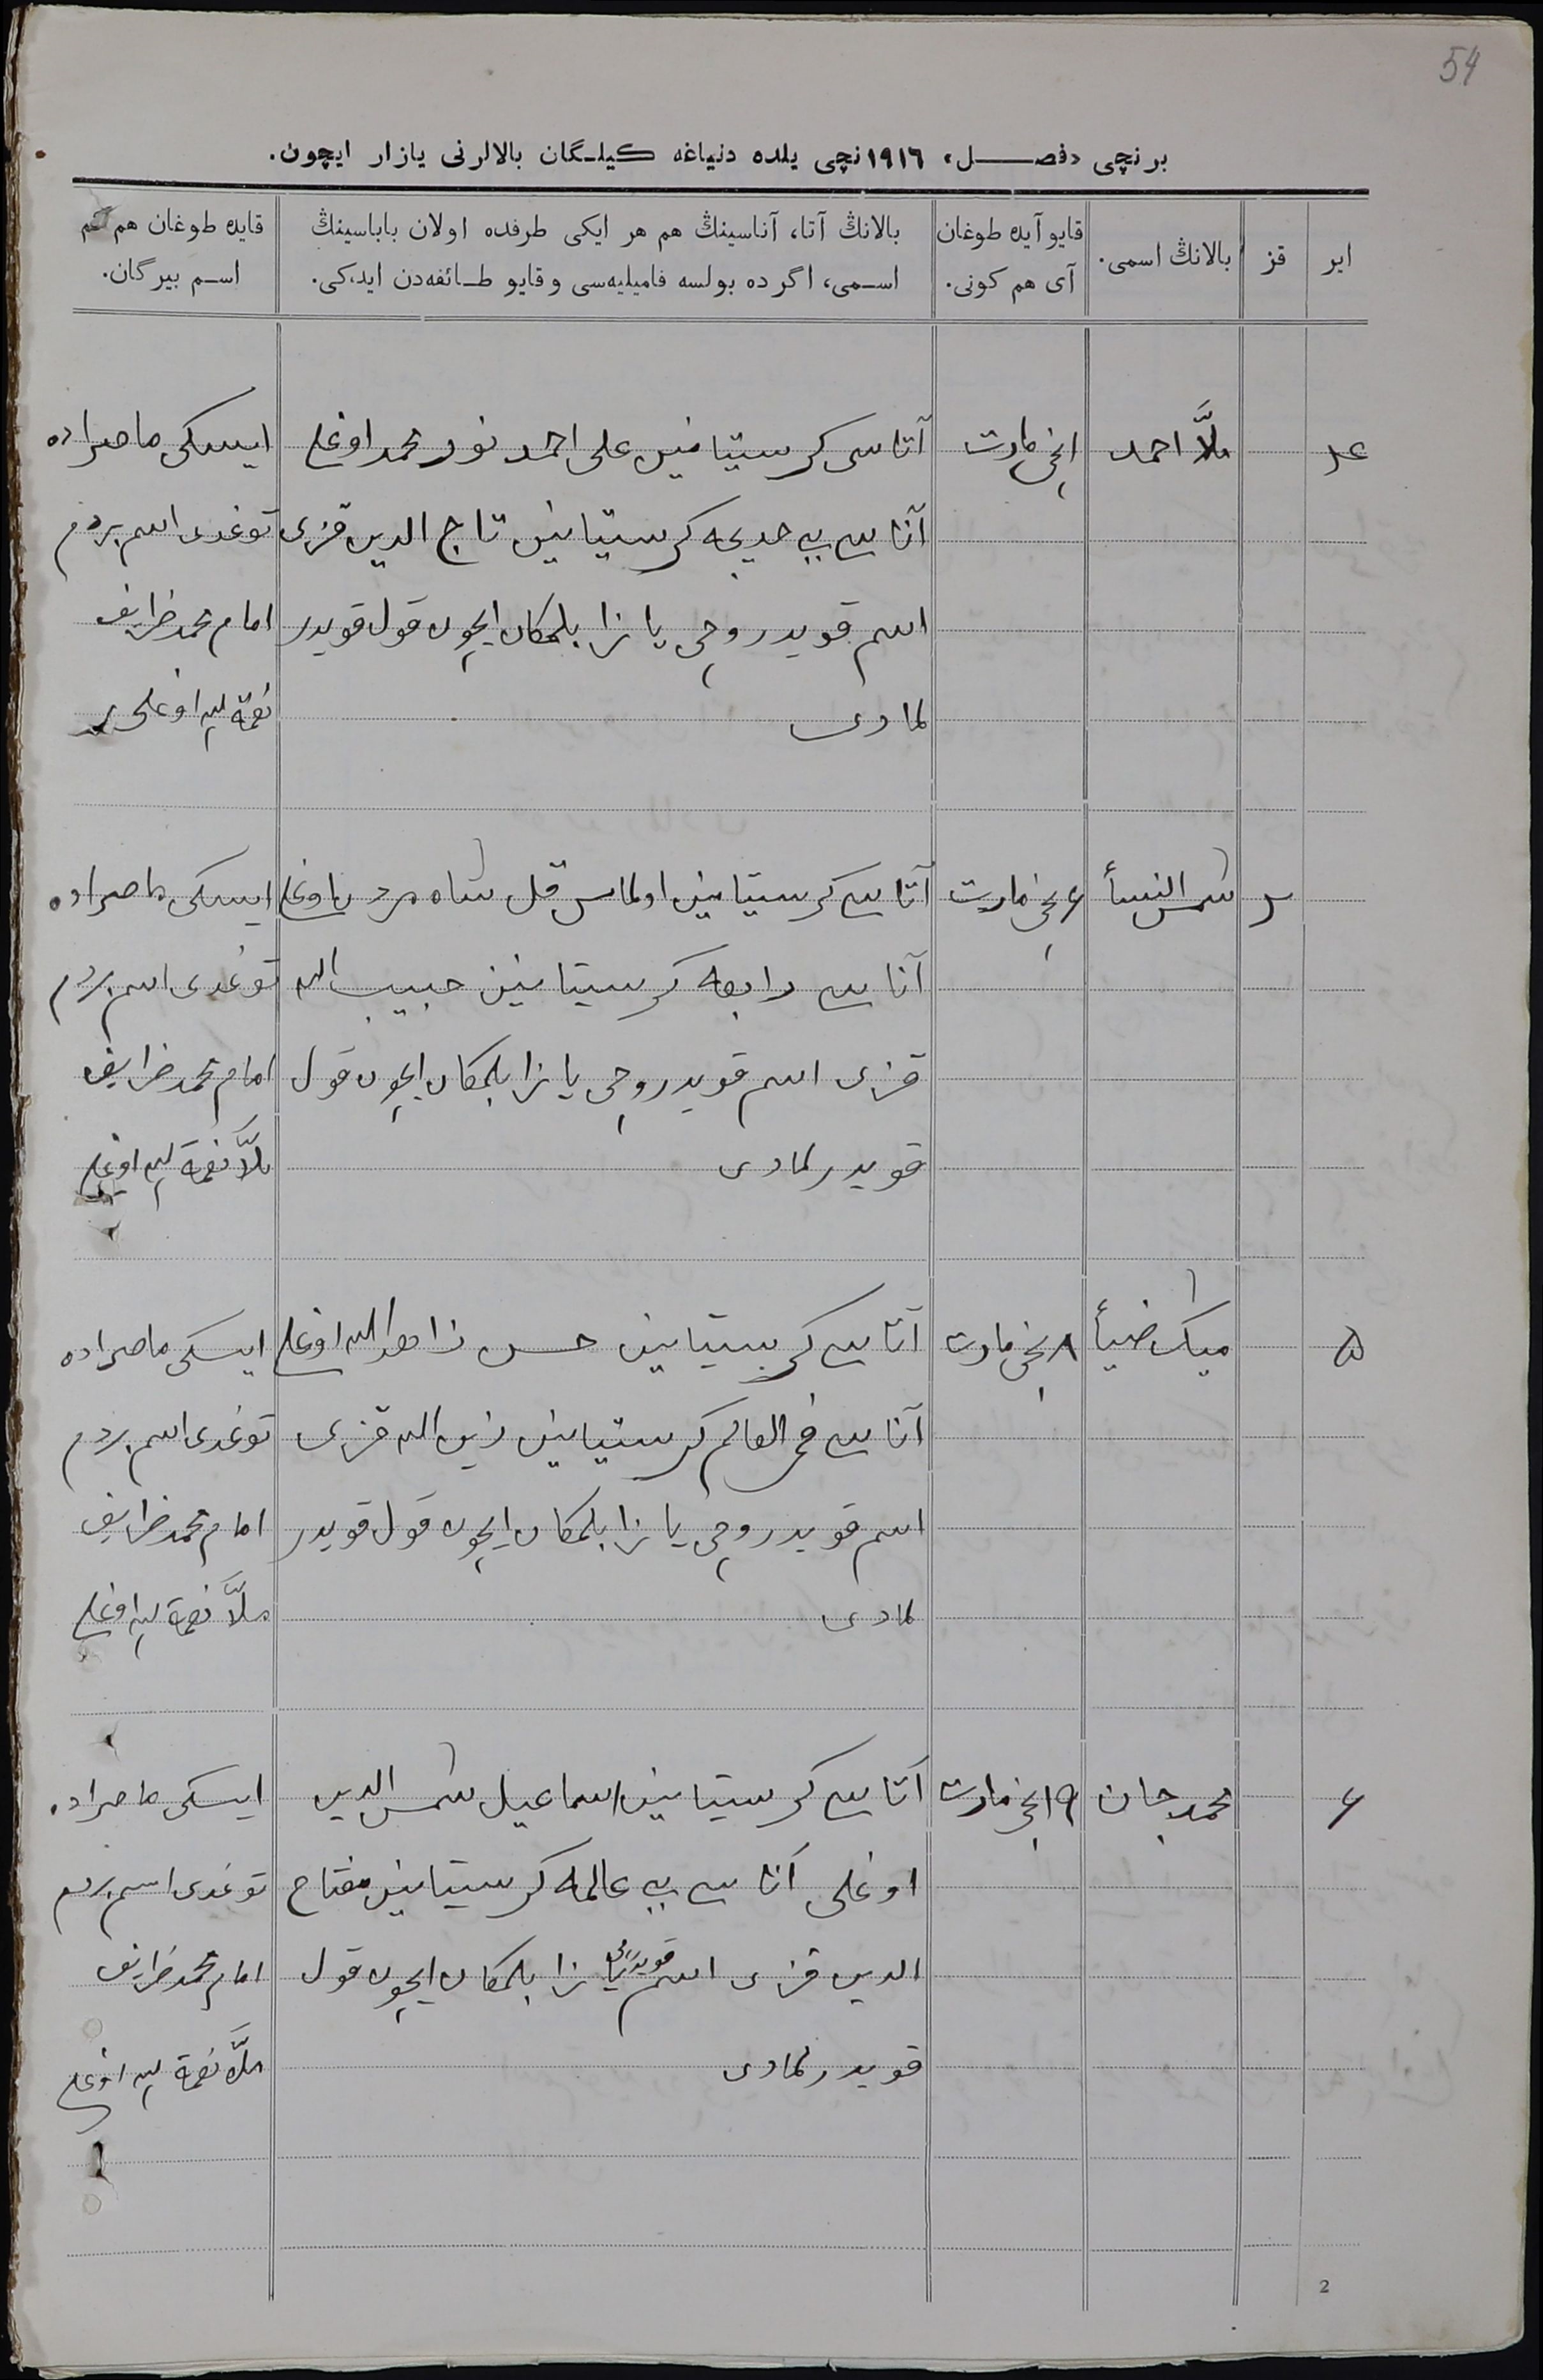 54
برنچی «فصل» ۱۹۱٦نچی یلده دنیاغه کیلگان بالالرنی یازار ایچون.
ایر
قز
بالانڭ اسمی.
قایو آیده طوغان
آی هم کونی.
بالانڭ آتا، آناسینڭ هم هر ایکی طرفده اولان باباسینڭ
اسمی، اگر ده بولسه فامیلیه‌سی و قایو طائفه‌دن ایدکی.
قایده طوغان هم کم
اسم بیرگان.
ملاَّ احمد
۱نچی مارت
آتاسی کرستیانین علی احمد نور محمد اوغلی
ایسکی ماصراده
آناسی بی خدیجه کرستیانین تاج الدین قزی
توغدی اسم بردم
اسم قویدروچی یازا بلمکان ایچون قول قویدر
امام محمد ظریف
لمادی
نعمة الله اوغلی
۲
شمس النسأ
۶نچی مارت
آتاسی کرستیانین اولماس قل شاه مردان اوغلی
ایسکی ماصراده
آناسی رابعه کرستیانین حبیب الله
توغدی اسم بردم
قزی اسم قویدروچی یازا بلمکان ایچون قول
امام محمد ظریف
قویدرلمادی
ملاَّ نعمة الله اوغلی
۵
میک ضیأ
۸نچی مارت
آتاسی کرستیانین حسن زاهد الله اوغلی
ایسکی ماصراده
آناسی فخر العالم کرستیانین زین الله قزی
توغدی اسم بردم
اسم قویدروچی یازا بلمکان ایچون قول قویدر
امام محمد ظریف
لمادی
ملاَّ نعمة الله اوغلی
۶
محمد جان
۱۹نچی مارت
آتاسی کرستیانین اسماعیل شمس الدین
ایسکی ماصراده
اوغلی آناسی بی عالمه کرستیانین مفتاح
توغدی اسم بردم
الدین قزی اسم قویدروچی یازا بلمکان ایچون قول
امام محمد ظریف
قویدرلمادی
ملاَّ نعمة الله اوغلی
2